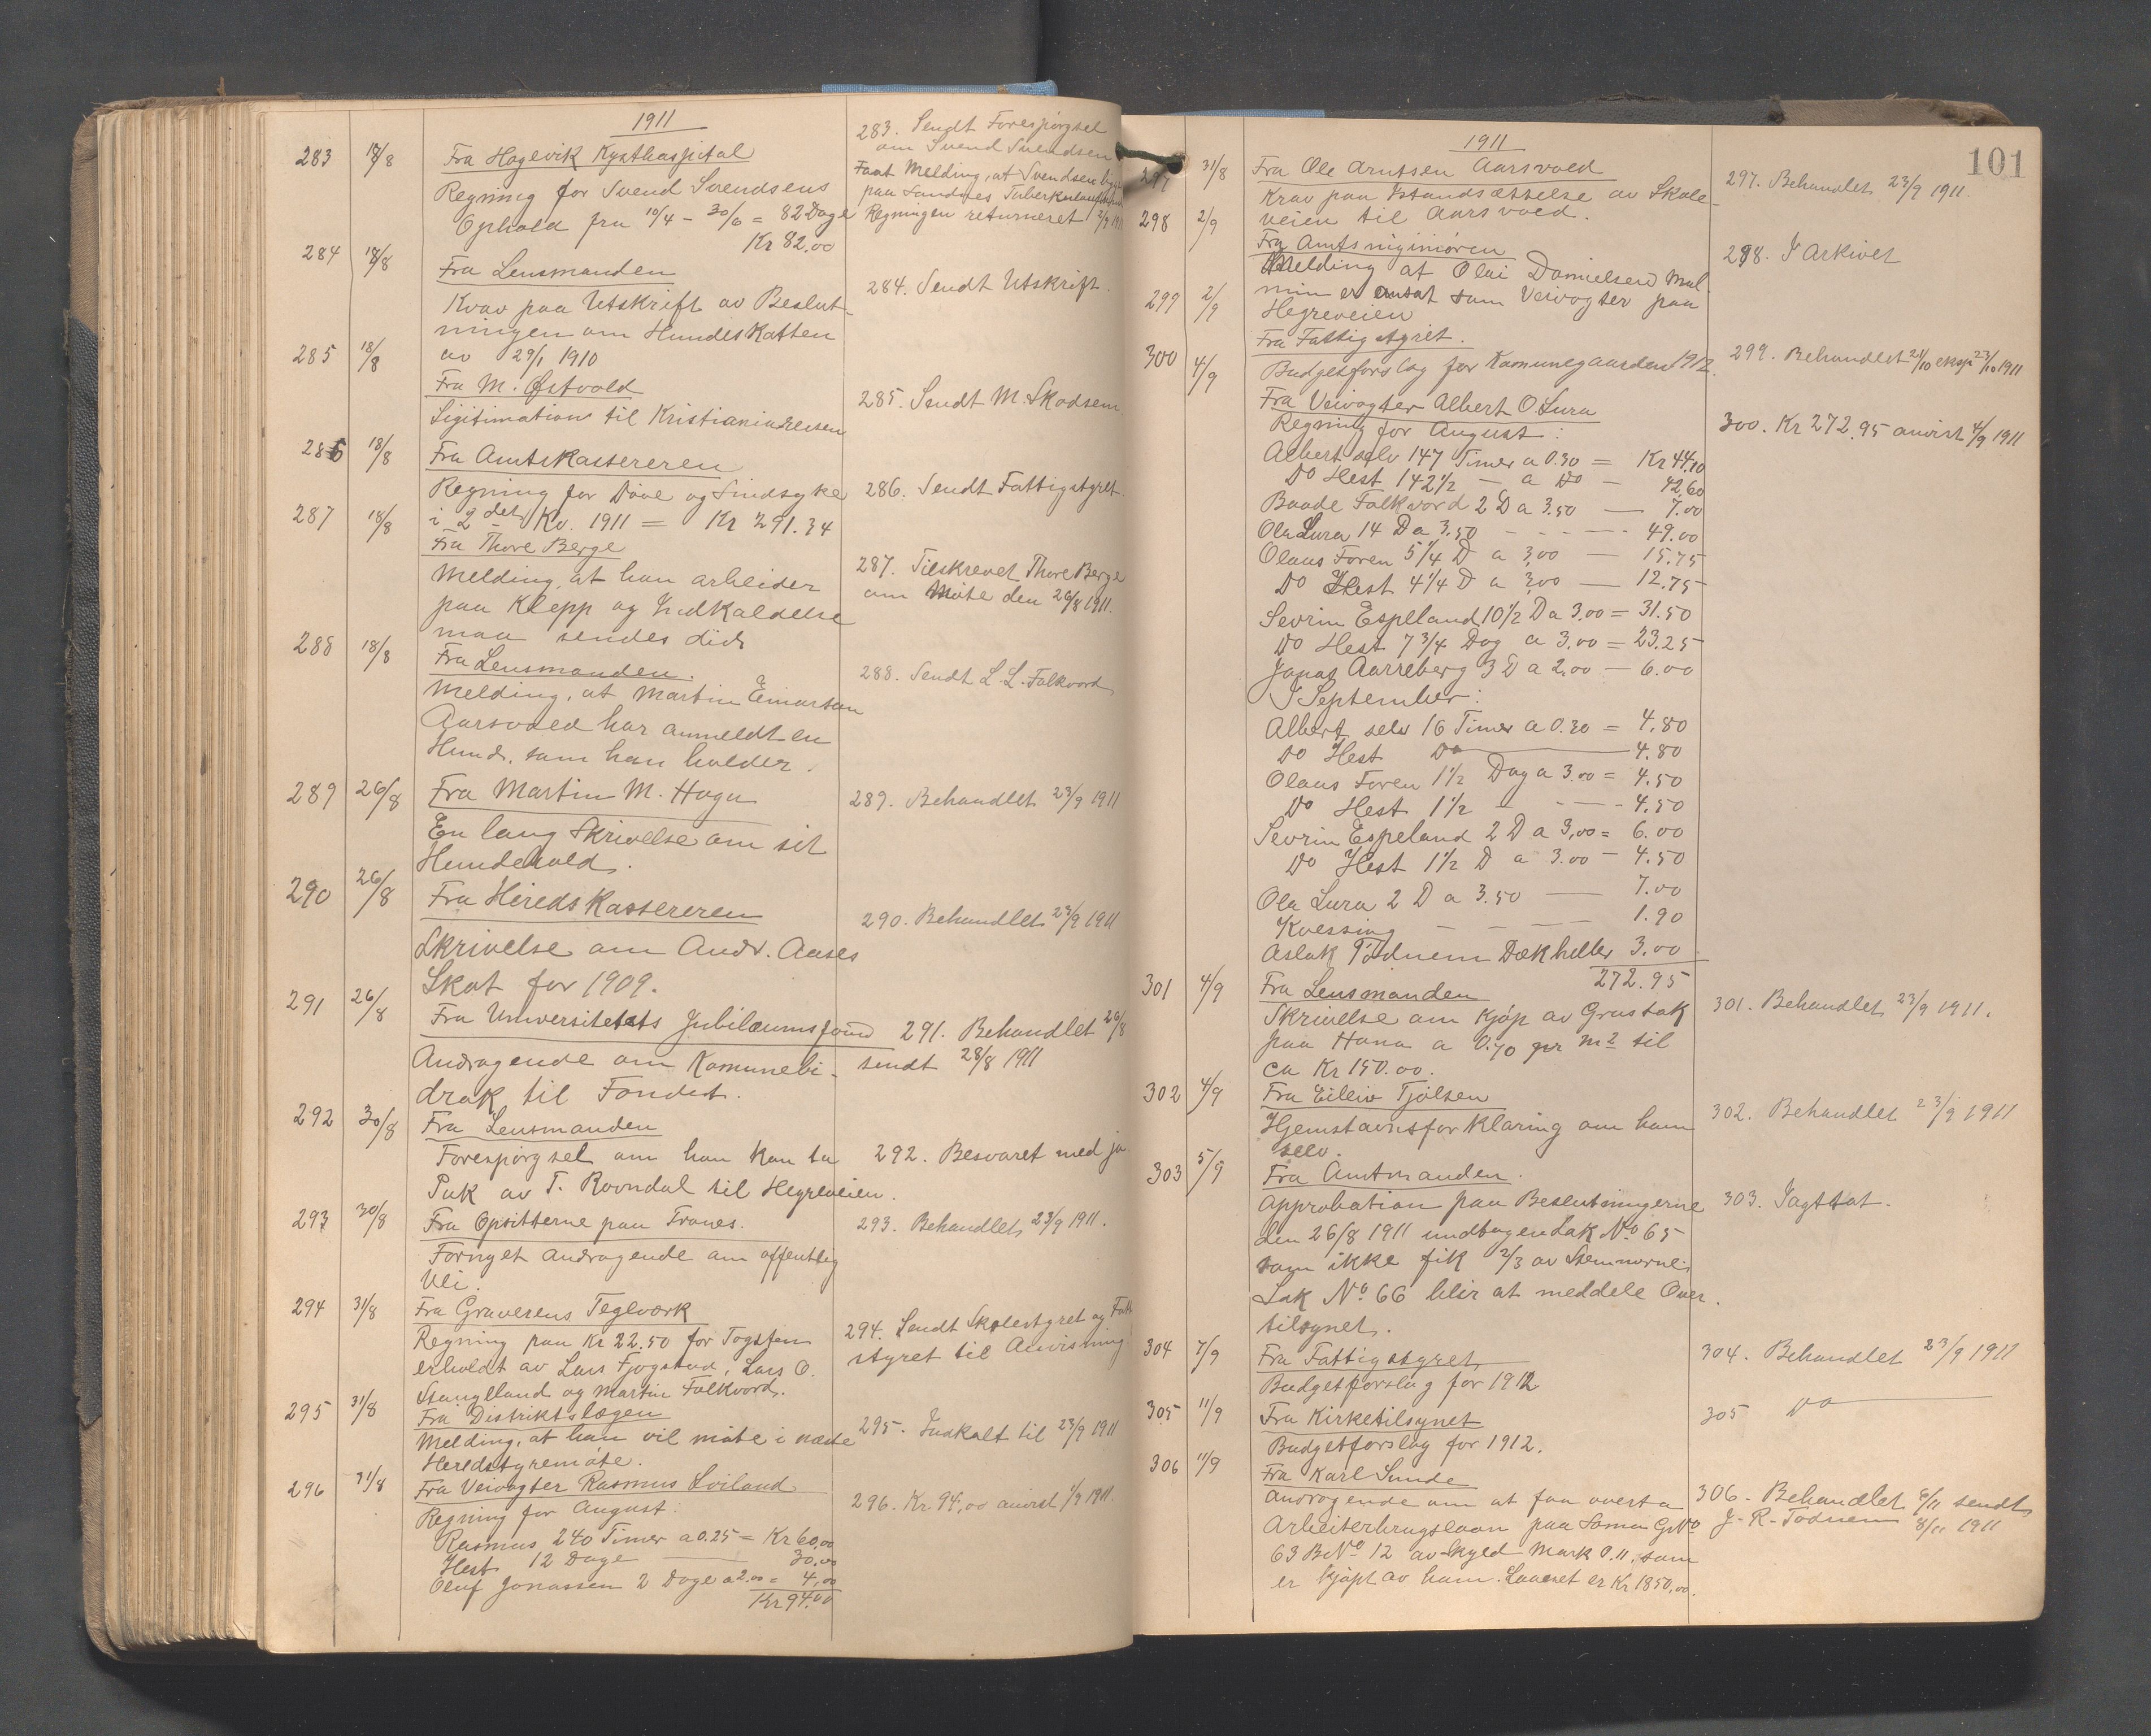 1911
283 18/8 Fra Hagevik Kysthospital
Regning for Svend Svendsens
Ophold fra 10/4 - 30/6 = 82 Dage
Kr 82.00
283. Sendt Forespørgsel
om Svend Svendsen
Faat Melding, at Svendsen
paa Sandnes
Regningen returneret 2/9 1911
284 18/8 Fra Lensmanden
Krav paa Utskrift av Beslut-
ningen om Hundeskatten
av 29/1 1910
284. Sendt Utskrift.
285 18/8 Fra M. Østvold
Ligitimation til Kristianiareisen
285. Sendt M. Skadsem
286 18/8 Fra Amtskassereren
Regning for Døve og Sindsyke
i 2det Kv. 1911 = Kr 291.34
286. Sendt Fattigstyret.
287 18/8 Fra Thore Berge
Melding, at han arbeider
paa Klepp og Indkaldelse
maa sendes did
287. Tilskrevet Thore Berge
om Møte den 26/8 1911.
288 18/8 Fra Lensmanden.
Melding, at Martin Einartsen
Aarsvold har anmeldt en
Hund, som han holder.
288. Sendt L. L. Folkvord
289 26/8 Fra Martin M. Hogn
En lang Skrivelse om sit
Hundehold.
289. Behandlet 23/9 1911
290 26/8 Fra Heredskassereren
Skrivelse om Andr. Aases
Skat for 1909.
290. Behandlet 23/9 1911
291 26/8 Fra Universitetets Jubilæumsfond
Andragende om Komunebi-
drak til Fondet.
291. Behandlet 26/8
sendt 28/8 1911
292 30/8 Fra Lensmanden
Forespørgsel om han kan ta
Puk av T. Rovndal til Hegreveien.
292. Besvaret med ja
293 30/8 Fra Opsitterne paa Trones.
Fornyet Andragende om offentlig
Vei.
293. Behandlet 23/9 1911.
294 31/8 Fra Graverens Teglværk
Regning paa Kr 22.50 for Tagsten
erholdt av Lars Fjogstad, Lars O.
Stangeland og Martin Folkvord.
294. Sendt Skolestyret og
styret til Anvisning.
295 31/8 Fra Distriktslægen
Melding, at han vil møte i næste
Heredstyremøte.
295. Indkalt til 23/9 1911
296 31/8 Fra Veivogter Rasmus Sviland
Regning for August:
Rasmus 240 Timer a 0.25 = Kr 60,00
Hest 12 Dage — 30.00
Oluf Jonassen 2 Dage a 2.00 = 4,00
Kr 94.00
296. Kr. 94,00 anvist 1/9 1911.
101
1911
297 31/8 Fra Ole Arntsen Aarsvold
Krav paa Istandsættelse av Skole-
veien til Aarsvold.
297. Behandlet 23/9 1911.
298 2/9 Fra Amtsinginiøren
Melding at Olai Danielsen Mal-
min er ansat som Veivogter paa
Hegreveien
298. I Arkivet
299 2/9 Fra Fattigstyret.
Budgetforslag for Komunegaarden 1912.
299. Behandlet 21/10 eksp 23/10 1911
300 4/9 Fra Veivogter Albert O. Lura
Regning for August:
300. Kr 272.95 anvist 4/9 1911
Albert selv 147 Timer a 0.30 = Kr 44.10
Do Hest 142 1/2 — a Do — 42.60
Baade Folkvord 2 D a 3.50 — 7.00
Ola Lura 14 D a 3.50 - - - - 49.00
Olaus Foren 5 1/4 D a 3,00 — 15.75
Do Hest 4 1/4 D a 3,00 — 12.75
Sevrin Espeland 10 1/2 D a 3.00 = 31.50
Do Hest 7 3/4 Dag a 3.00 = 23.25
Jonas Aarreberg 3 D a 2.00 — 6.00
I September:
Albert selv 16 Timer a 0.30 = 4.80
Do Hest Do — 4.80
Olaus Foren 1 1/2 Dag a 3.00 = 4.50
Do Hest 1 1/2 - - - - 4.50
Sevrin Espeland 2 D a 3,00 = 6.00
Do Hest 1 1/2 D a 3.00 — 4.50
Ola Lura 2 D a 3.50 — 7.00
Kvessing — — — 1.90
Aslak Tødnem Dækheller 3.00
272.95
301 4/9 Fra Lensmanden
Skrivelse om Kjøp av Grustak
paa Hana a 0.70 pr m2 til
ca Kr 150.00.
301. Behandlet 23/9 1911.
302 4/9 Fra Eileiv Tjølsen
Hjemstavnsforklaring om ham
selv.
302. Behandlet 23/9 1911
303 5/9 Fra Amtmanden.
Approbation paa Beslutningerne
den 26/8 1911 undtagen Sak No 65
som ikke fik 2/3 av Stemmerne.
Sak No 66 blir at meddele Over-
tilsynet.
303. Iagttat.
304 7/9 Fra Fattigstyret
Budgetforslag for 1912
304. Behandlet 23/9 1911
305 11/9 Fra Kirketilsynet
Budgetforslag for 1912.
305 Do
306 11/9 Fra Karl Sunde
Andragende om at faa overta
Arbeiterbrugslaan paa Soma GNo
63 BNo 12 av Skyld Mark 0.11, som
er kjøpt av ham. Laanet er Kr 1850,00.
306. Behandlet 4/11 sendt
J. R. Tødnem 8/11 1911